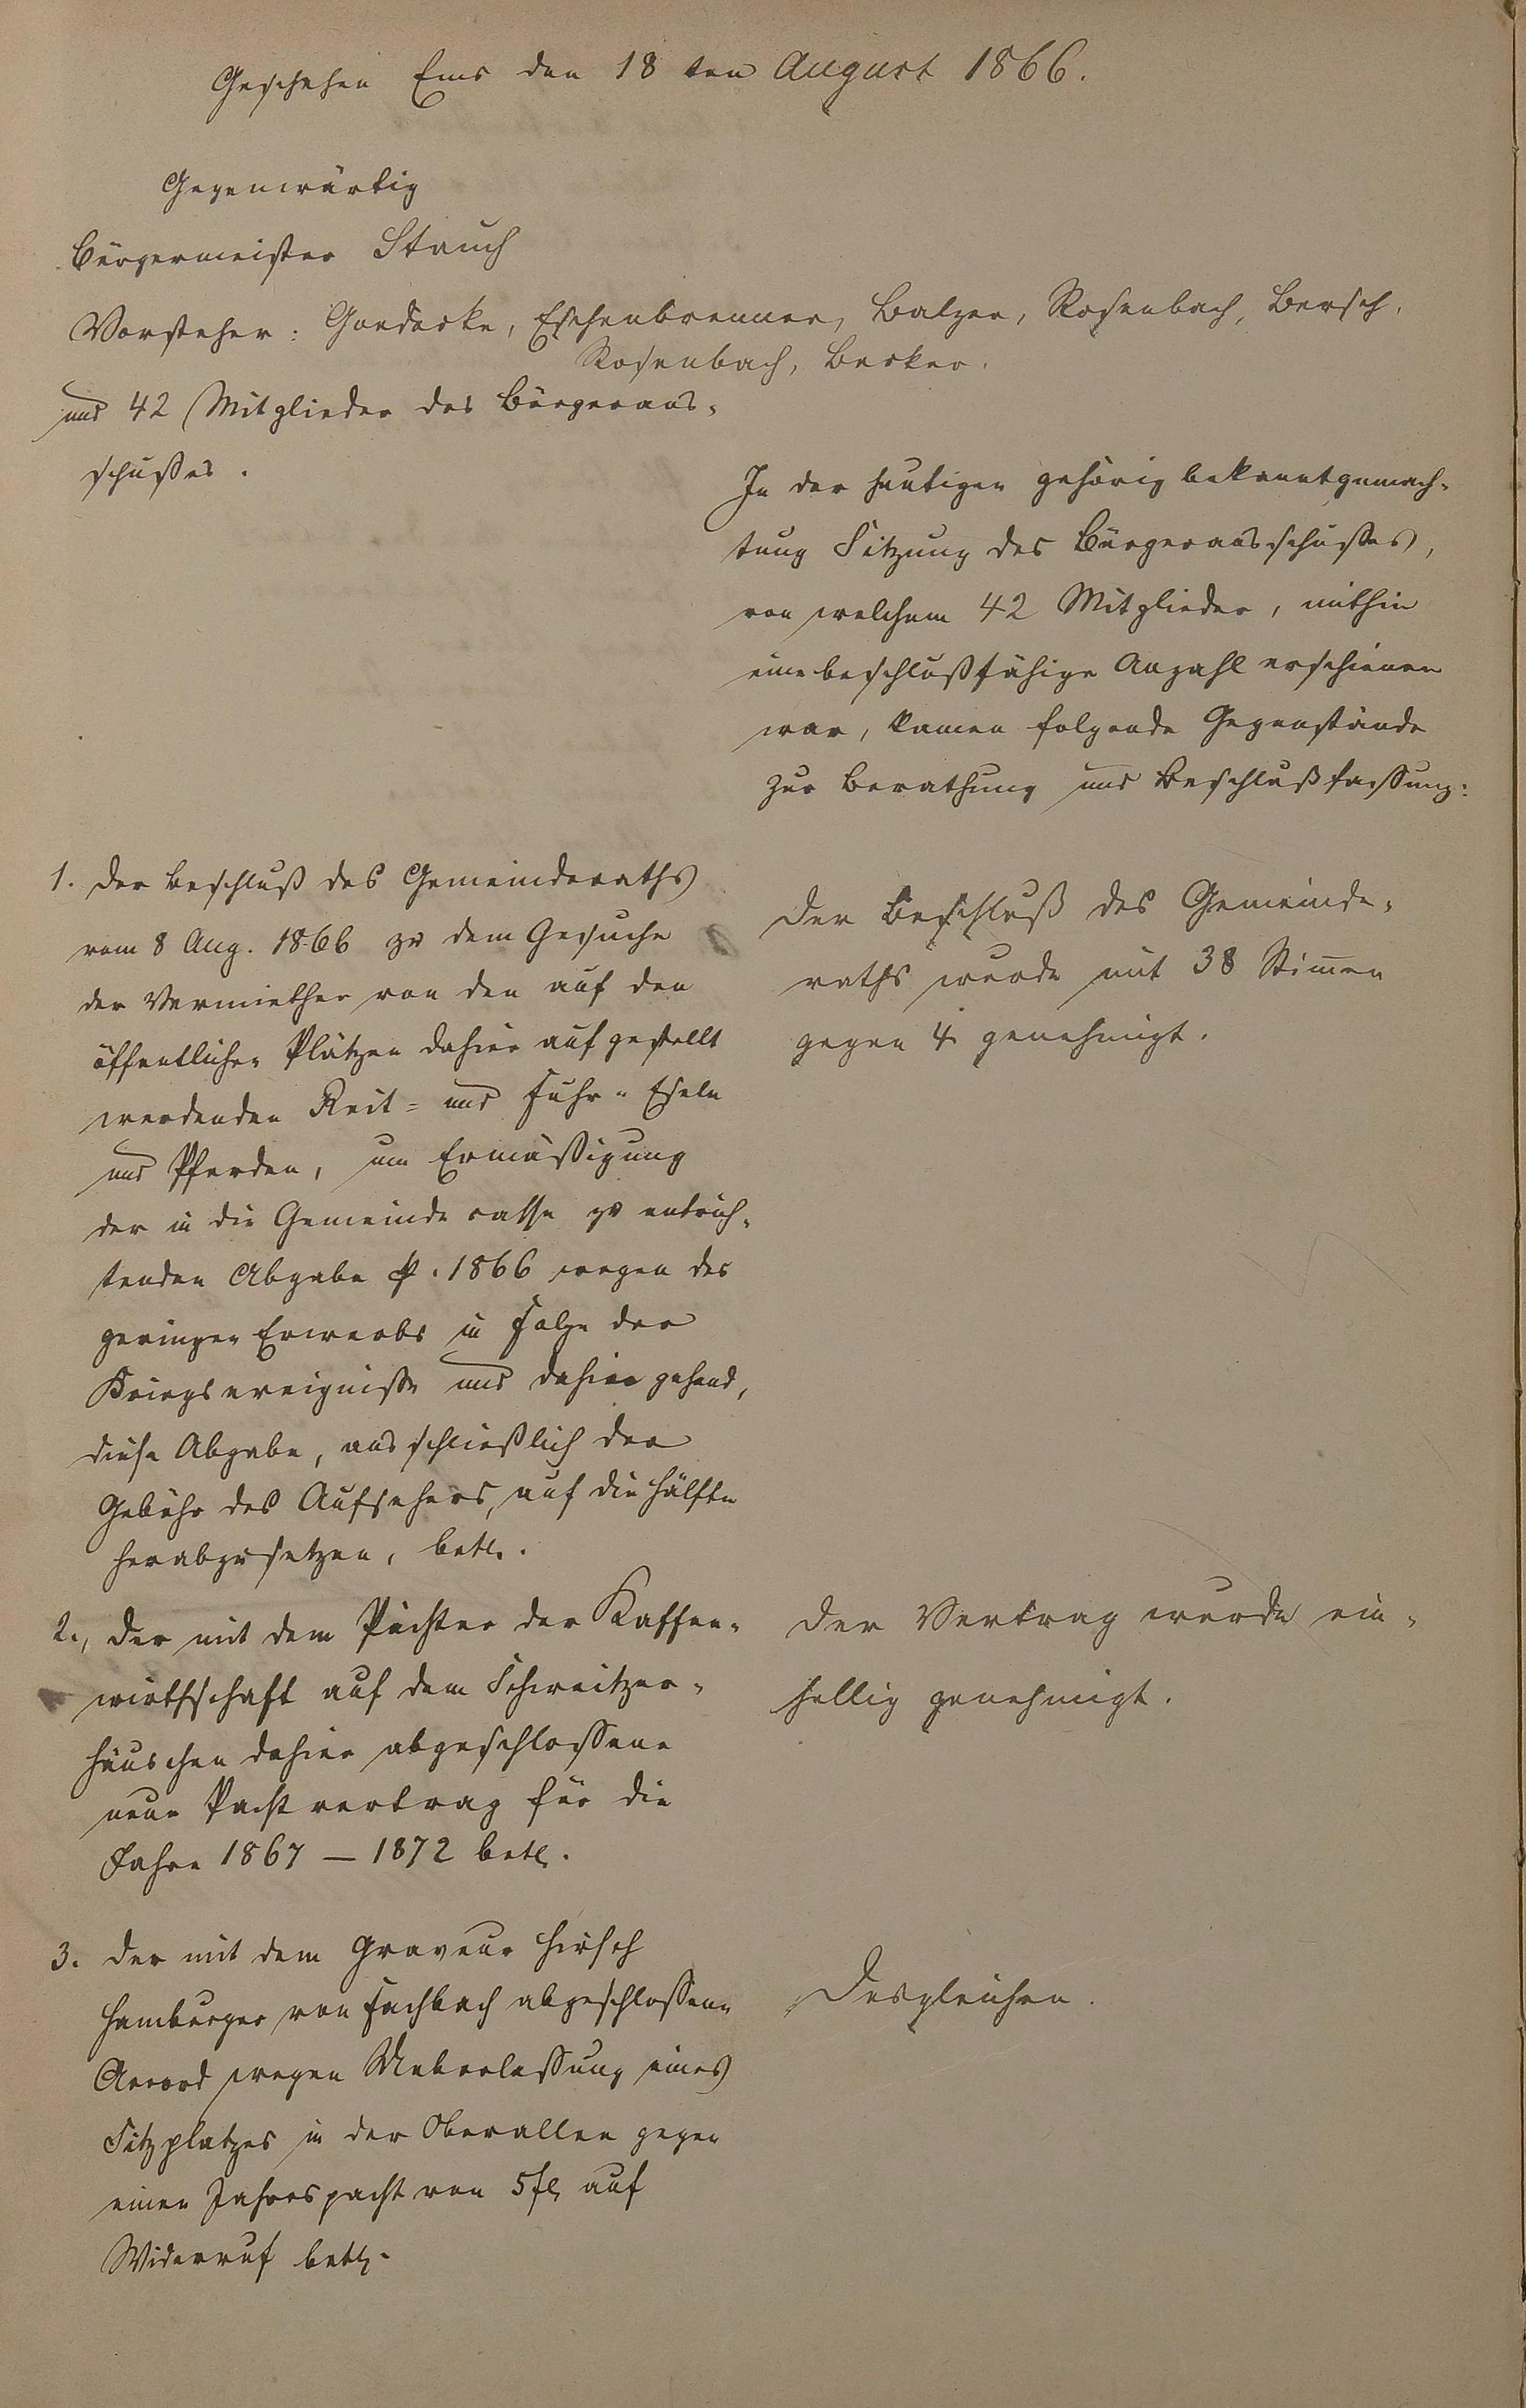 Geschehen Ems den 18 ten August 1866.
Gegenwärtig
Bürgermeister Stauch
Vorsteher: Goedecke, Eschenbrenner, Balzer, Rosenbach, Bersch,
Rosenbach, Becker.
und 42 Mitglieder des Bürgeraus-
schußes.
In der heutigen gehörig bekanntgemach-
tung Sitzung des Bürgerausschußes,
von welchem 42 Mitglieder, mithin
eine beschlußfähige Anzahl erschienen
war, kamen folgende Gegenstände
zur Berathung und Beschlußfassung:
1. Der Beschluß des Gemeinderaths
vom 8 Aug. 1866 zu dem Gesuche
der Vermiether von den auf den
öffentlichen Plätzen dahier aufgestellt
werdenden Reit= und Fuhr= Eseln
und Pferden, um Ermäßigung
der in die Gemeindecasse zu entrich-
tenden Abgabe p. 1866 wegen des
geringen Erwerbs in Folge der
Kriegsereigniße und dahier gehend,
diese Abgabe, ausschließlich der
Gebühr des Aufsehers, auf die Hälfte
herabzusetzen, betr.
Der Beschluß des Gemeinde-
raths wurde mit 38 Stimen
gegen 4 genehmigt.
2., Der mit dem Pächter der Kaffee-
wirthschaft auf dem Schweitzer-
häuschen dahier abgeschlossene
neue Pachtvertrag für die
Jahre 1867 – 1872 betr.
Der Vertrag wurde ein-
hellig genehmigt.
3. Der mit dem Graveur Hirsch
Hamburger von Fachbach abgeschlossene
Accord wegen Ueberlassung eines
Sitzplatzes in der Oberallee gegen
einen Jahrespacht von 5 fl. auf
Widerruf betr.
Desgleichen.